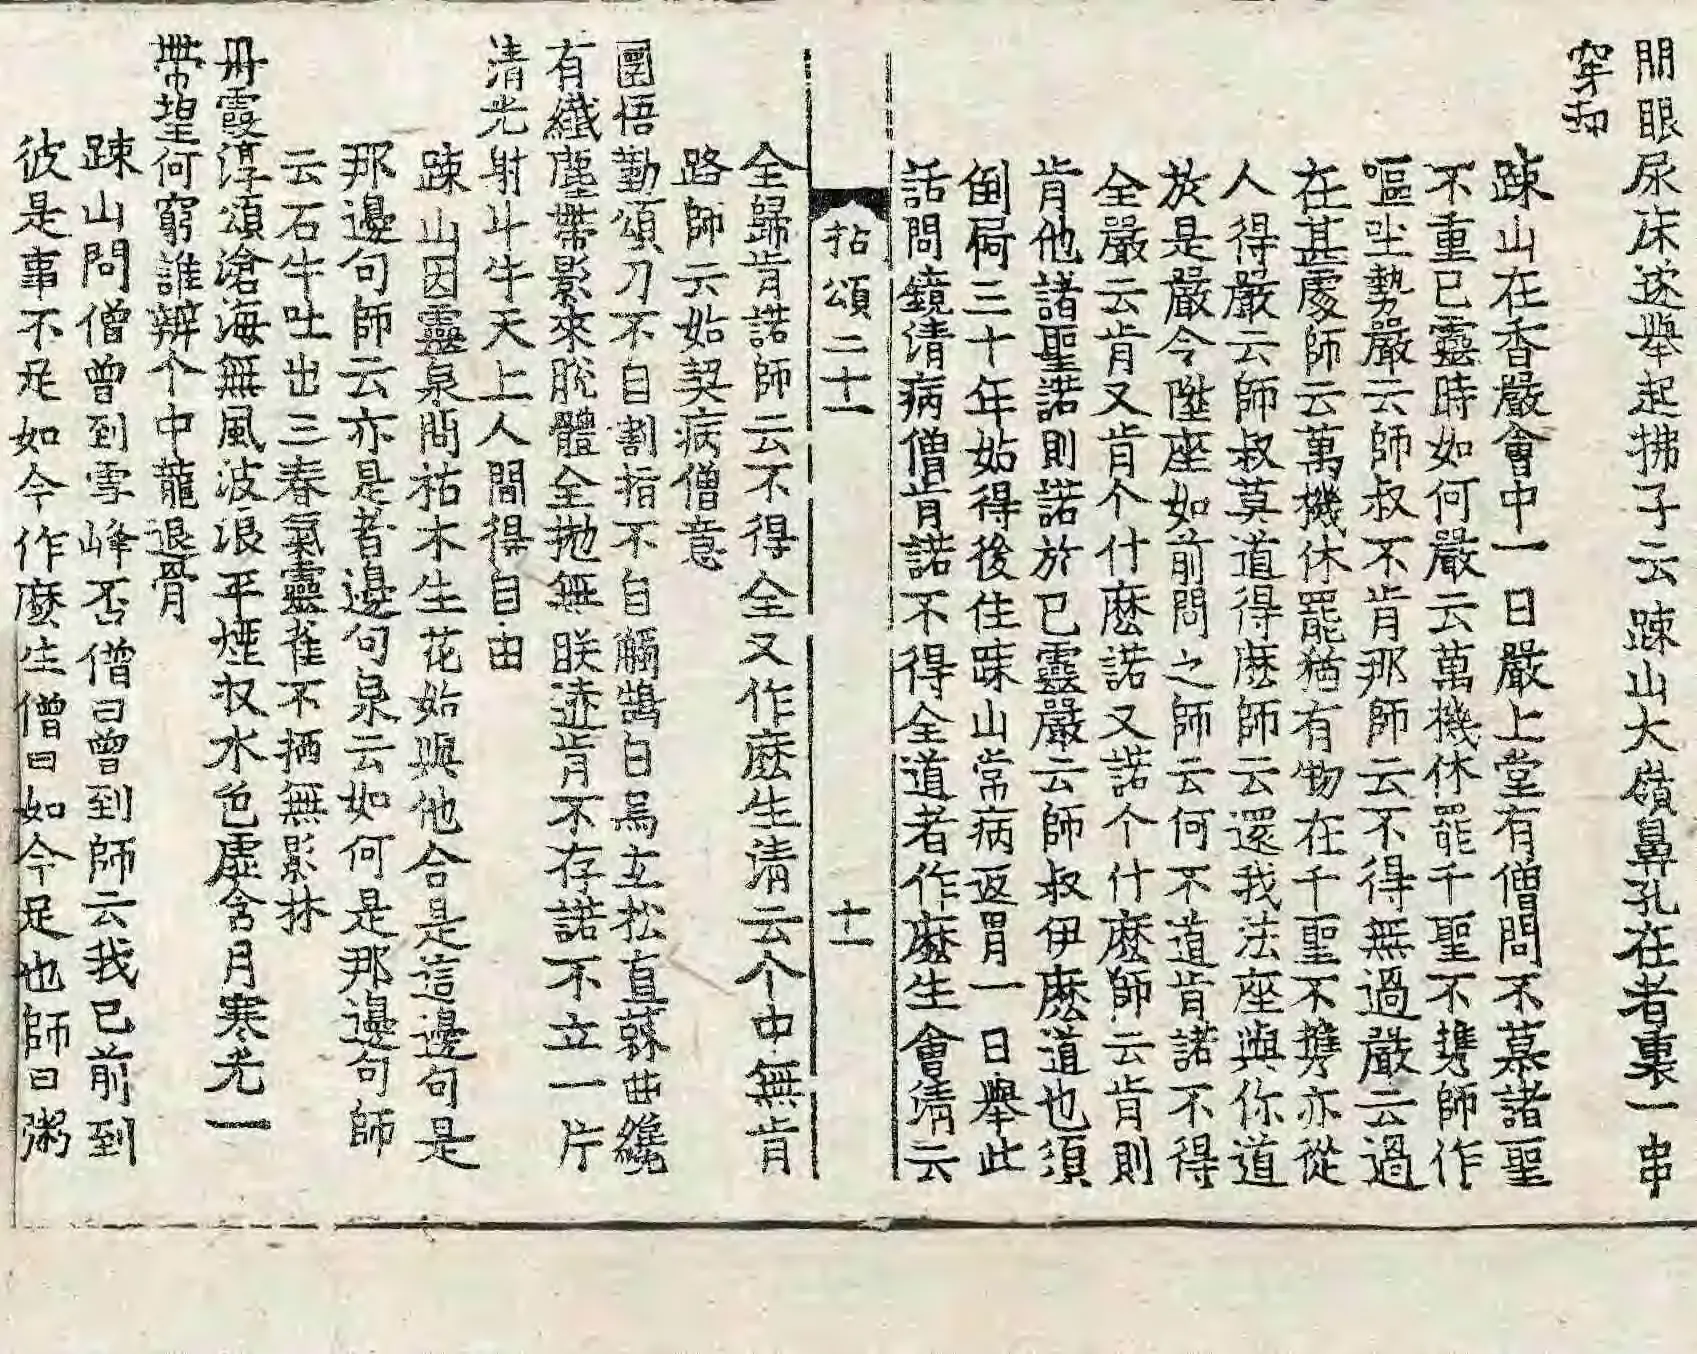 開眼尿床遂舉起拂子云踈山大嶺鼻孔在者裏一串
穿却
踈山在香嚴會中一日嚴上堂有僧問不慕諸聖
不重已靈時如何嚴云萬機休罷千聖不携師作
嘔吐勢嚴云師叔不肯那師云不得無過嚴云過
在甚處師云萬機休罷猶有物在千聖不携亦從
人得嚴云師叔莫道得麽師云還我法座與你道
於是嚴令陞座如前問之師云何不道肯諾不得
全嚴云肯又肯个什麽諾又諾个什麽師云肯則
肯他諸聖諾則諾於已靈嚴云師叔伊麽道也須
倒屙三十年始得後住踈山常病返胃一日舉此
話問鏡清病僧肯諾不得全道者作麽生會清云
拈頌二十 十一
全歸肯諾師云不得全又作麽生清云个中無肯
路師云始契病僧意
圜悟勤頌刀不自割指不自觸鵠白烏玄松直蕀曲纔
有纖塵帶影來脫體全抛無朕迹肯不存諾不立一片
清光射斗牛天上人間得自由
踈山因靈泉問祜木生花始與他合是這邊句是
那邊句師云亦是者邊句泉云如何是那邊句師
云石牛吐出三春氣靈雀不捿無影林
丹霞淳頌滄海無風波浪平煙收水色虛含月寒光一
帶望何窮誰辨个中龍退骨
踈山問僧曾到雪峰否僧曰曾到師云我已前到
彼是事不足如今作麽生僧曰如今足也師曰粥